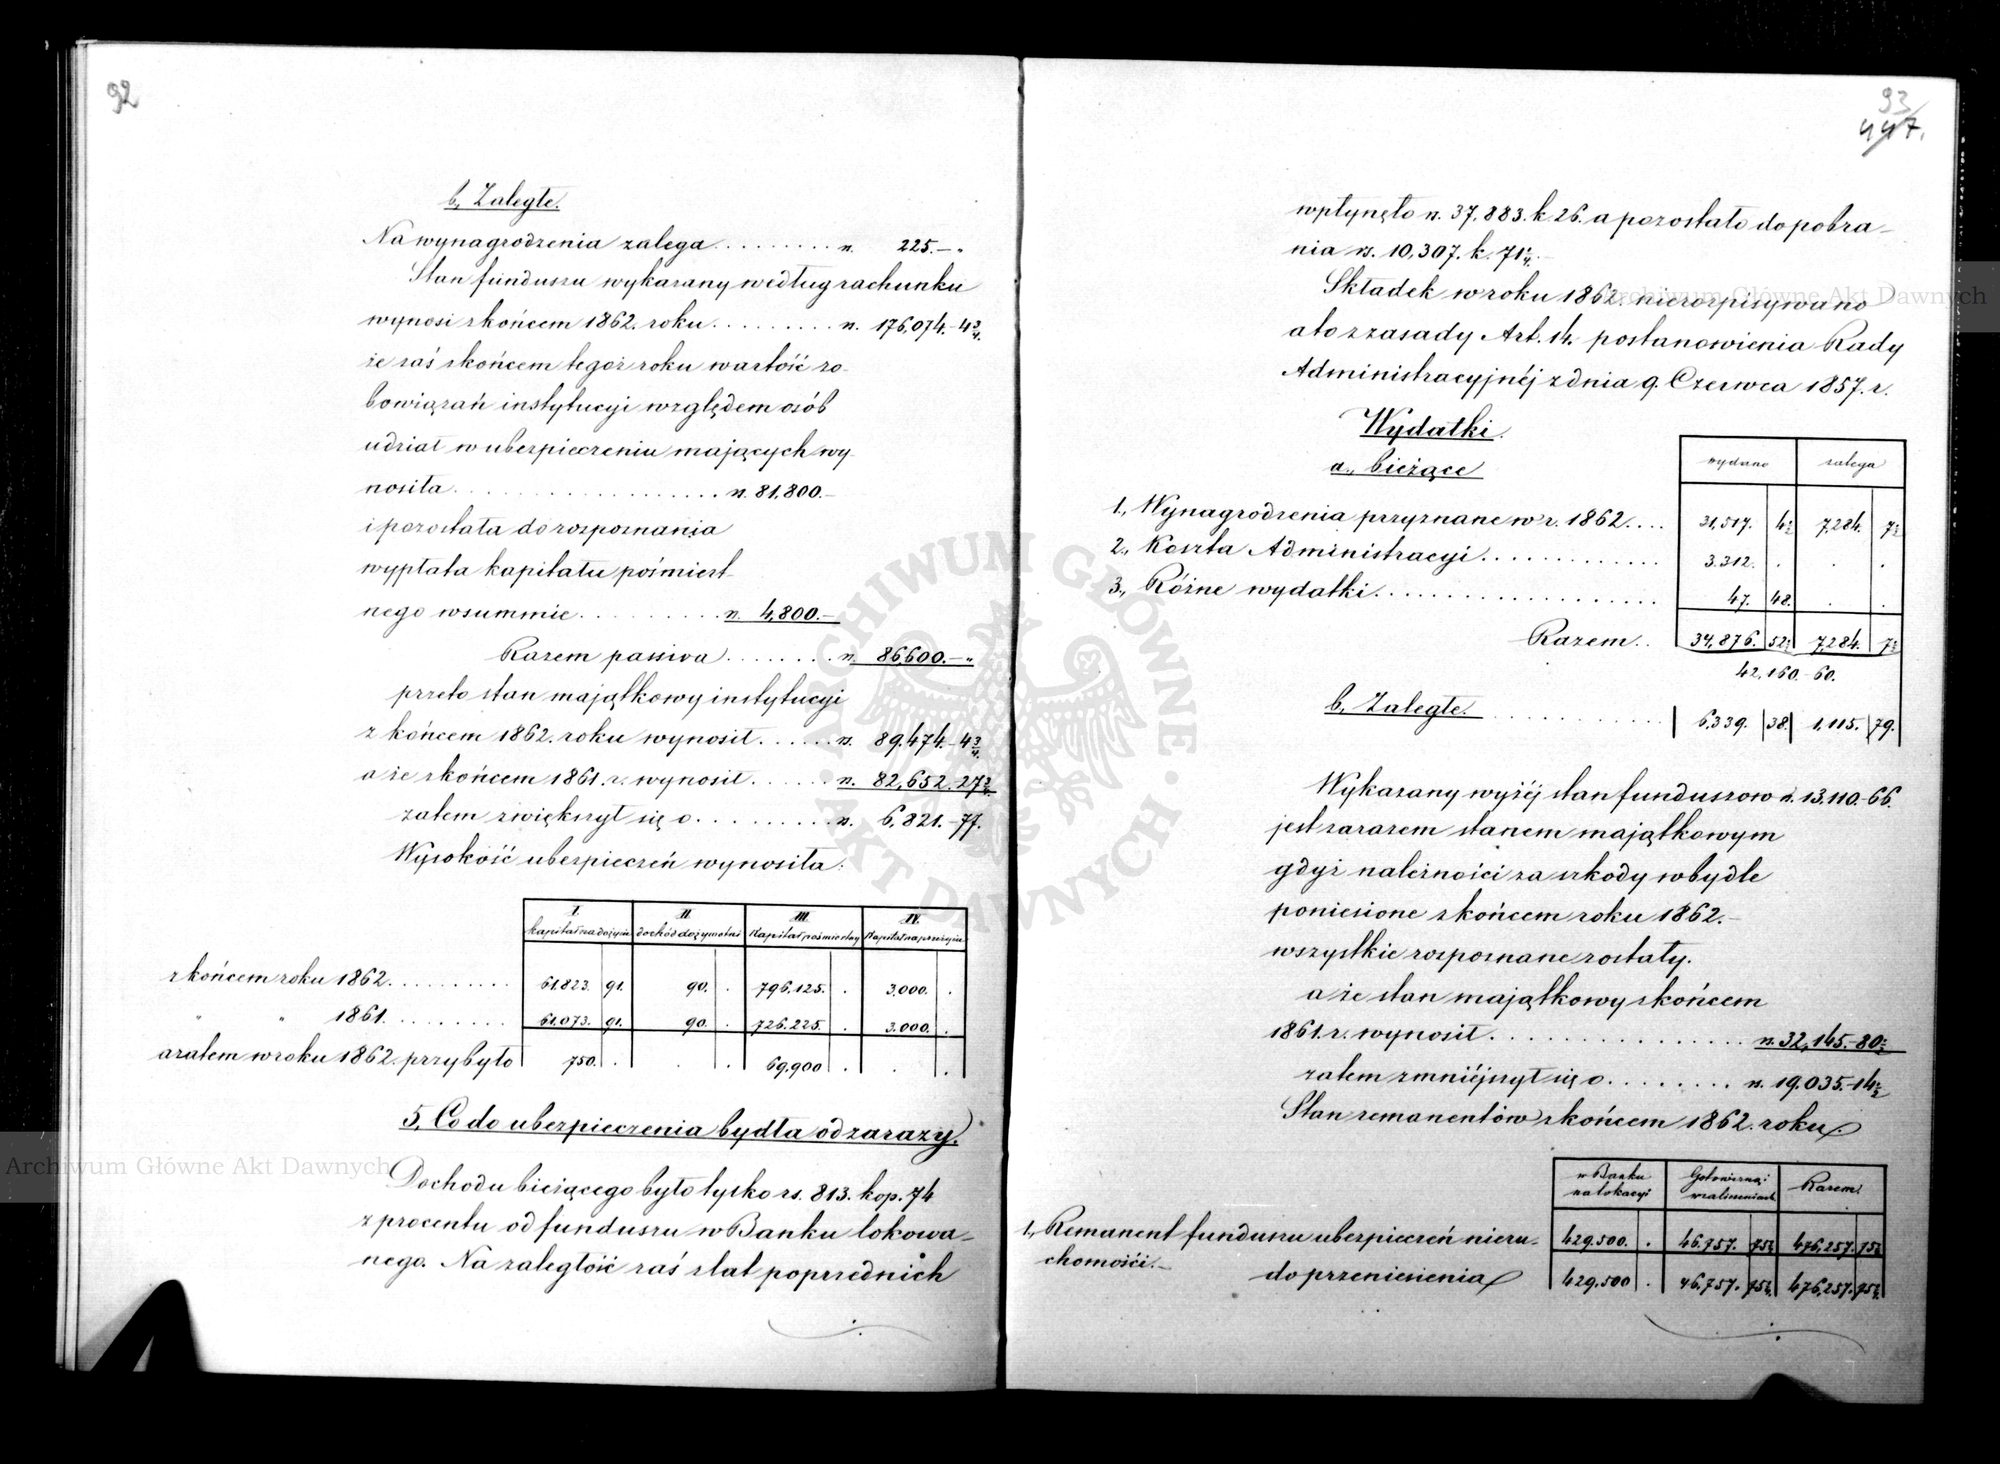 92
b, Zaległe.
Na wynagrodzenia zalega . . . . . . . . . . rs. 225.—„
Stan funduszu wykazany według rachunku
wynosi z końcem 1862. roku . . . . . . . . . . rs. 176,074.-4¾.
że zaś z końcem tegoż roku wartość zo-
bowiązań instytucyi względem osób
udział w ubezpieczeniu mających wy-
nosiła . . . . . . . . . . . . . . . . . . . rs. 81,800.—
i pozostała do rozpoznania
wypłata kapitału pośmiert-
nego w summie . . . . . . . . . . rs. 4,800.—
Razem passiva . . . . . . . . rs. 86,600.—„
przeto stan majątkowy instytucyi
z końcem 1862. roku wynosił . . . . . . rs. 89,474.-4¾
a że z końcem 1861. r. wynosił . . . . . . rs. 82,652.27¾
zatem zwiększył się o . . . . . . . . . . rs. 6,821.-77.
Wysokość ubezpieczeń wynosiła:
I. II. III. IV.
Kapitał na dożycie dochód dożywotni Kapitał pośmiertny Kapitał na przeżycie
z końcem roku 1862. . . . . . . . . . . 61.823. 91. 90. . 796.125. . 3.000. .
„ „ 1861. . . . . . . . . . . 61.073. 91. 90. . 726.225. . 3.000. .
a zatem w roku 1862. przybyło 750. . . . 69.900 . . .
5, Co do ubezpieczenia bydła od zarazy.
Dochodu bieżącego było tylko rs. 813. kop. 74
z procentu od funduszu w Banku lokowa-
nego. Na zaległość zaś z lat poprzednich
93
447.
wpłynęło rs. 37.883. k 26. a pozostało do pobra-
nia rs. 10,307. k. 71¼.
Składek w roku 1862. nierozpisywano
a to z zasady Art. 14. postanowienia Rady
Administracyjnéj z dnia 9. Czerwca 1857. r.
Wydatki.
a., bieżące
wydano zalega
1., Wynagrodzenia przyznane w r. 1862. . . . 31,517. 4½ 7,284. 7½
2., Koszta Administracyi . . . . . . . . . . . . . 3.312. . . .
3., Różne wydatki . . . . . . . . . . . . . . . . . . . 47. 48. . .
Razem . . 34,876. 52½ 7,284. 7½
42,160.-60.
b, Zaległe. . . . . . . . . . . . . 6,339. 38. 1,115. 79.
Wykazany wyżéj stan funduszow rs. 13.110.-66.
jest zarazem stanem majątkowym
gdyż należności za szkody w bydle
poniesione z końcem roku 1862.—
wszystkie rozpoznane zostały.
a że stan majątkowy z końcem
1861. r. wynosił . . . . . . . . . . . . . . . . rs. 32,145.-80½
zatem zmniéjszył się o . . . . . . . . . rs. 19.035.-14½
Stan remanentów z końcem 1862. roku.
w Banku na lokacyi Gotowizną i w zaliczeniach Razem
1., Remanent funduszu ubezpieczeń nieru- 429.500. . 46.757. 75½ 476,257. 75½
chomości.—
do przeniesienia 429.500 . 46,757. 75½. 476,257. 75½
ARCHIWUM GŁÓWNE AKT DAWNYCH
Archiwum Główne Akt Dawnych
Archiwum Główne Akt Dawnych